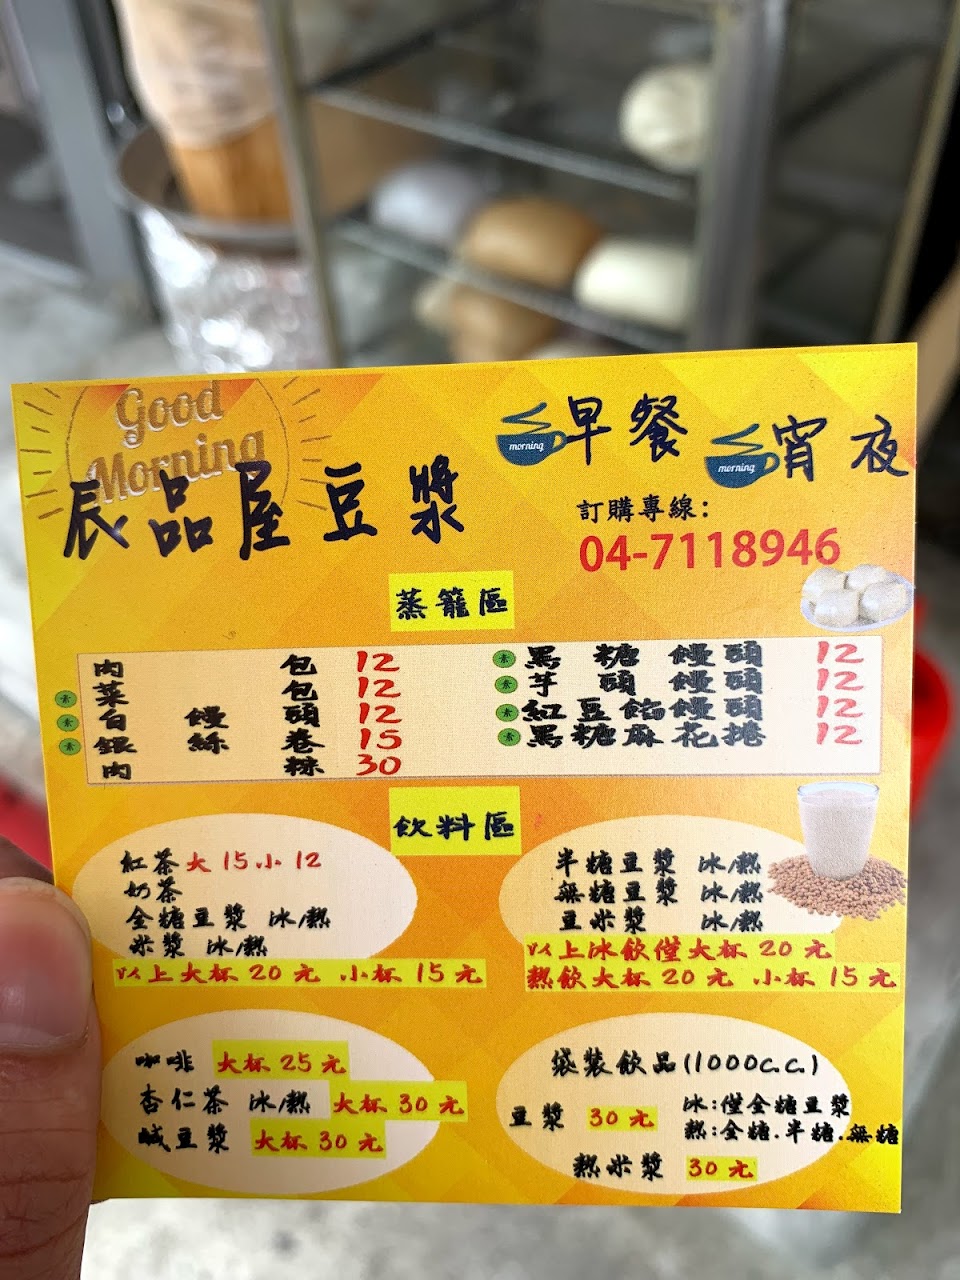 Good
Morning
辰品屋豆漿
morning 早餐
morning 宵夜
訂購專線:
04-7118946
蒸籠區
肉包 12
素 菜包 12
素 白饅頭 12
素 銀絲卷 15
肉粽 30
素 黑糖饅頭 12
素 芋頭饅頭 12
素 紅豆餡饅頭 12
素 黑糖麻花捲 12
飲料區
紅茶大15小12
奶茶
全糖豆漿 冰/熱
米漿 冰/熱
以上大杯20元 小杯15元
半糖豆漿 冰/熱
無糖豆漿 冰/熱
豆米漿 冰/熱
以上冰飲僅大杯20元
熱飲大杯20元 小杯15元
咖啡 大杯25元
杏仁茶 冰/熱 大杯30元
鹹豆漿 大杯30元
袋裝飲品(1000c.c.)
豆漿 30元 冰:僅全糖豆漿
熱:全糖.半糖.無糖
熱米漿 30元